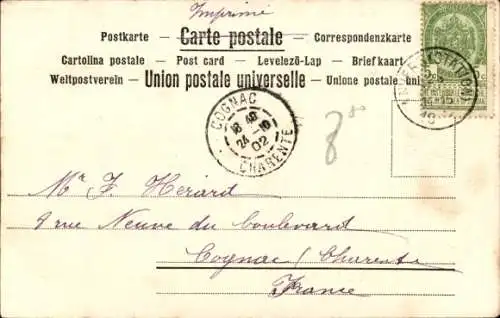 Imprimé
Postkarte — Carte postale — Correspondenzkarte
Cartolina postale — Post card — Levelező-Lap — Briefkaart
Weltpostverein — Union postale universelle — Unione postale
COGNAC
18 40
24 - 10
02
CHARENTE
Mr F. Herard
9 rue Neuve du boulevard
Cognac / Charente
France